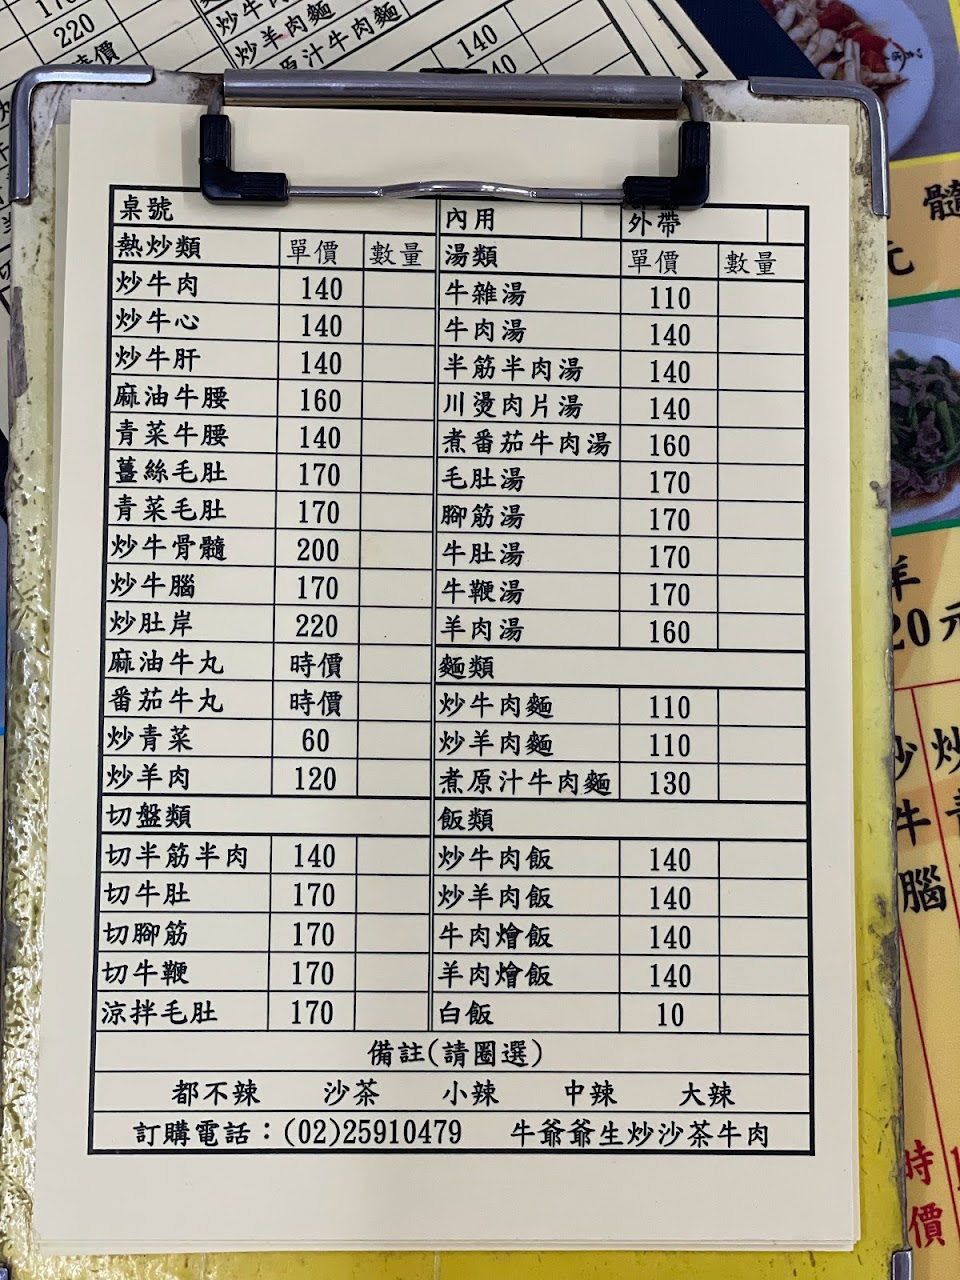 170
220
時價
炒羊肉麵
原汁牛肉麵
140
桌號
內用
外帶
熱炒類 單價 數量
炒牛肉 140
炒牛心 140
炒牛肝 140
麻油牛腰 160
青菜牛腰 140
薑絲毛肚 170
青菜毛肚 170
炒牛骨髓 200
炒牛腦 170
炒肚岸 220
麻油牛丸 時價
番茄牛丸 時價
炒青菜 60
炒羊肉 120
切盤類
切半筋半肉 140
切牛肚 170
切腳筋 170
切牛鞭 170
涼拌毛肚 170
湯類 單價 數量
牛雜湯 110
牛肉湯 140
半筋半肉湯 140
川燙肉片湯 140
煮番茄牛肉湯 160
毛肚湯 170
腳筋湯 170
牛肚湯 170
牛鞭湯 170
羊肉湯 160
麵類
炒牛肉麵 110
炒羊肉麵 110
煮原汁牛肉麵 130
飯類
炒牛肉飯 140
炒羊肉飯 140
牛肉燴飯 140
羊肉燴飯 140
白飯 10
備註(請圈選)
都不辣 沙茶 小辣 中辣 大辣
訂購電話：(02)25910479 牛爺爺生炒沙茶牛肉
髓
元
羊
20元
炒牛腦
時價